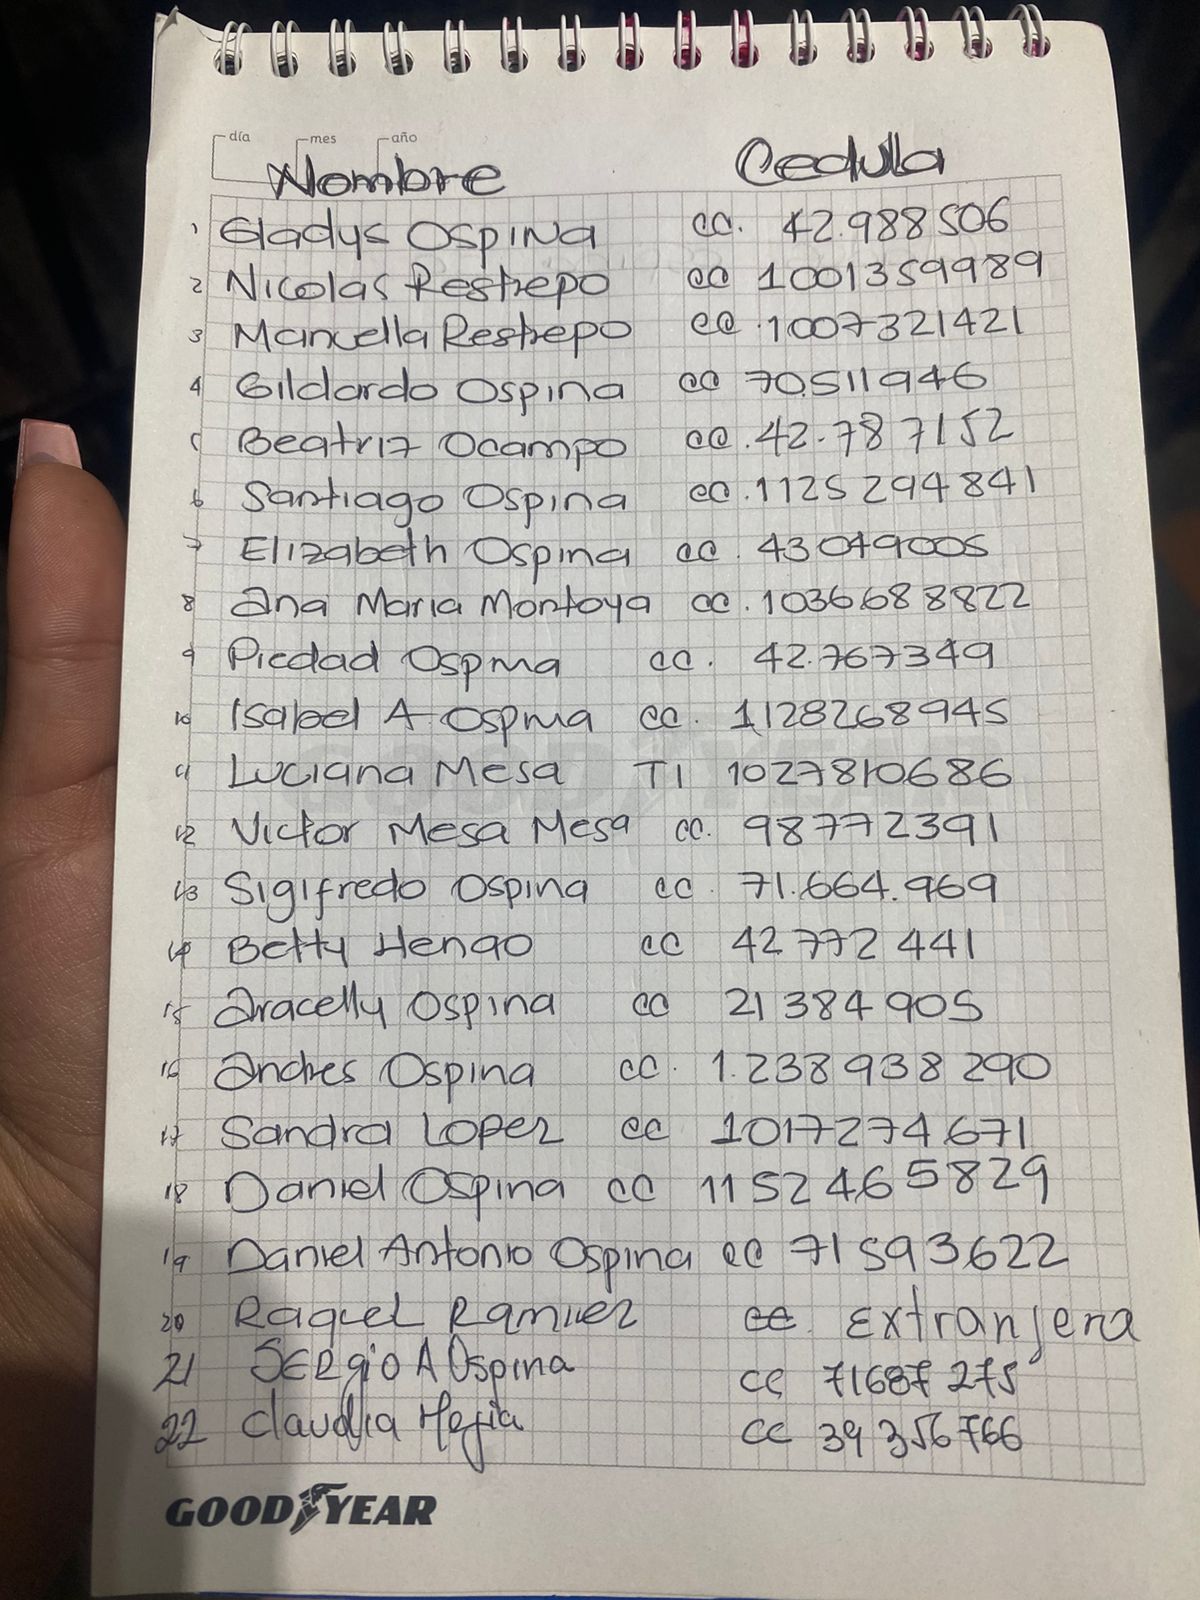 día mes año
Nombre Cedulla
1 Gladys Ospina cc. 42.988506
2 Nicolas Restrepo cc 1001359989
3 Marcella Restrepo cc.1007321421
4 Gildardo Ospina cc 70511946
5 Beatriz Ocampo cc.42.787152
6 Santiago Ospina cc.1125294841
7 Elizabeth Ospina cc. 43049005
8 Ana Maria Montoya cc.1036688822
9 Piedad Ospina cc. 42.767349
10 Isabel A Ospina cc. 1128268945
11 Luciana Mesa TI 1027810686
12 Victor Mesa Mesa cc. 98772391
13 Sigifredo Ospina cc. 71.664.969
14 Betty Henao cc 42772441
15 Aracelly Ospina cc 21384905
16 Andres Ospina cc. 1.238938290
17 Sandra Lopez cc 1017274671
18 Daniel Ospina cc 1152465829
19 Daniel Antonio Ospina cc 71593622
20 Raquel Ramirez ce. Extranjera
21 SERgio A Ospina cc 71687275
22 Claudia Mejia cc 39356766
GOODYEAR